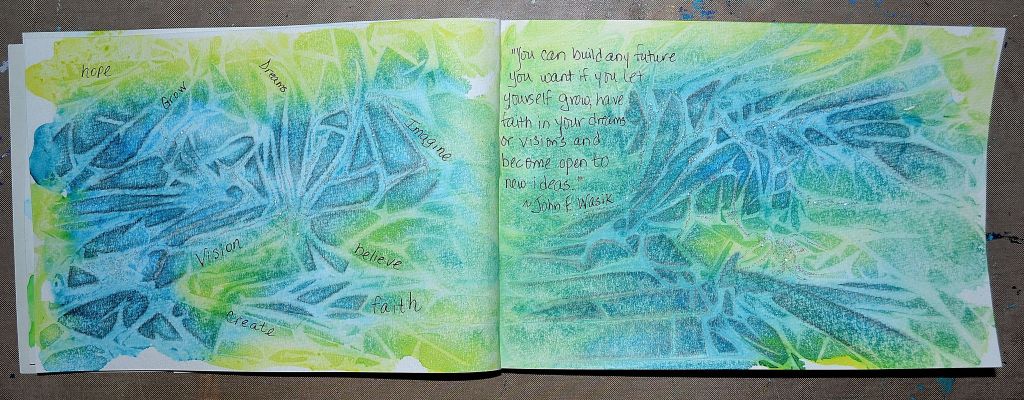 hope
Grow
Dreams
Imagine
Vision
believe
faith
create
"You can build any future
you want if you let
yourself grow, have
faith in your dreams
or visions and
become open to
new ideas."
~John F. Wasik